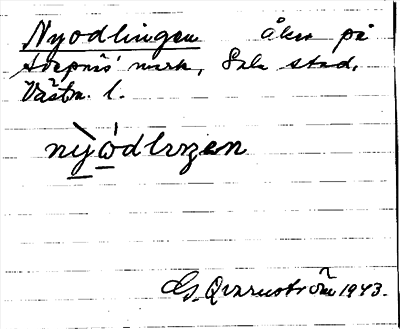 Nyodlingen åker på
mark, Sala stad,
Västm. l.
nỳódlɩŋen
G. Qvarnström 1943.